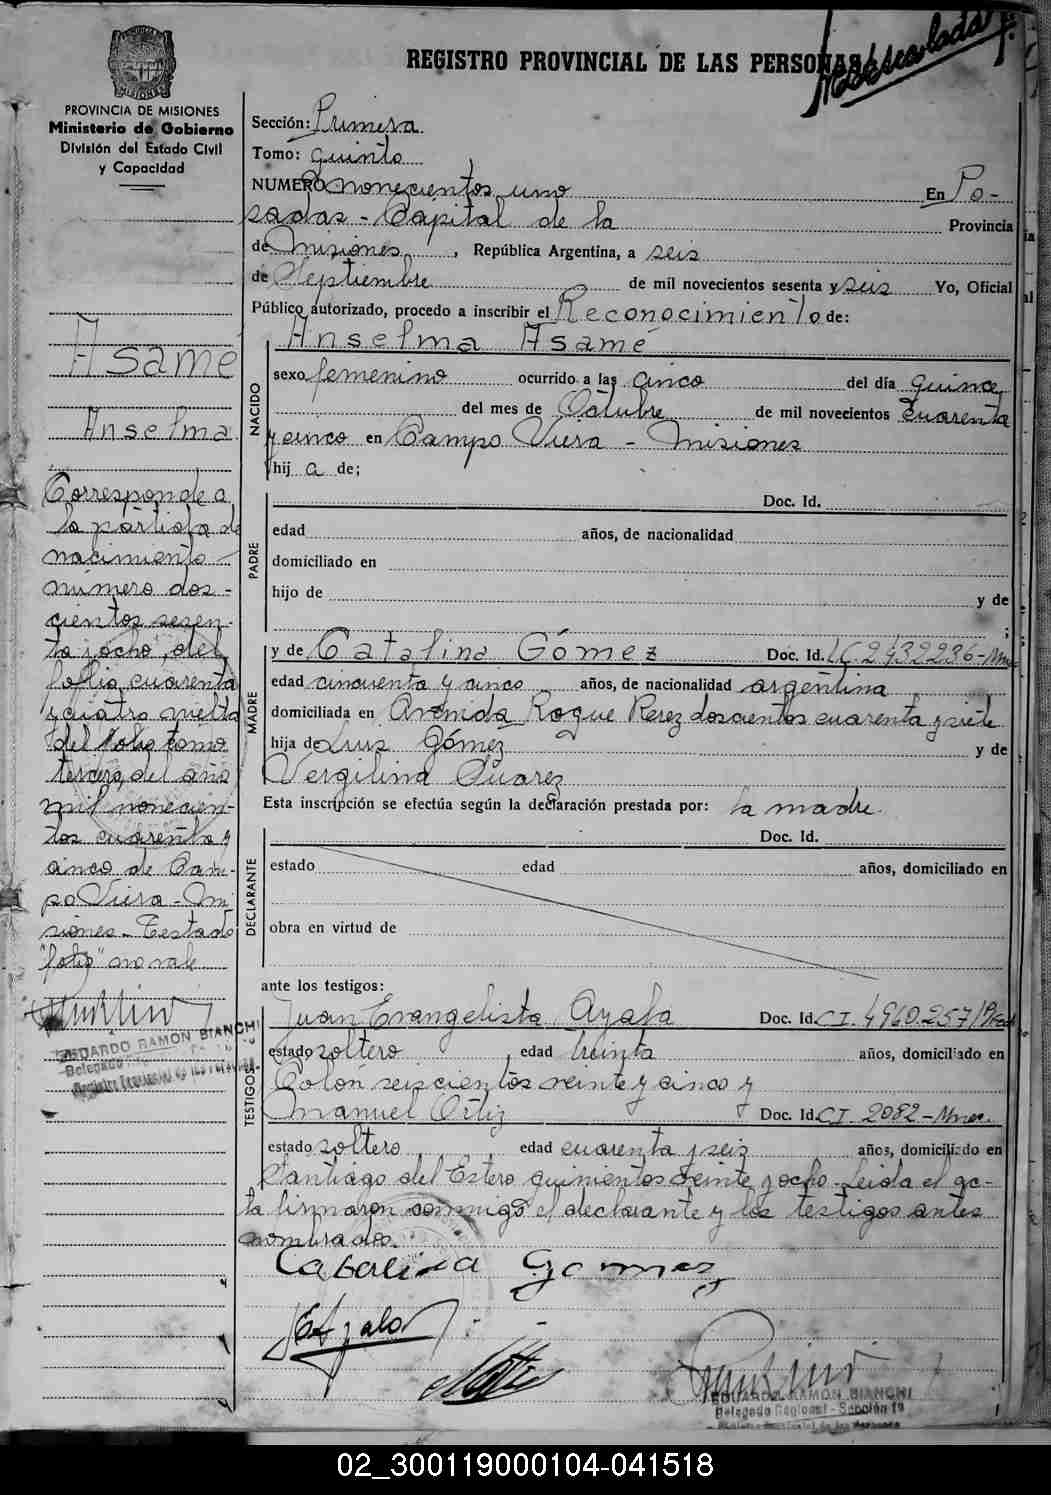 REGISTRO PROVINCIAL DE LAS PERSONAS
PROVINCIA DE MISIONES
Ministerio de Gobierno
División del Estado Civil
y Capacidad
Asamé
Anselma
Corresponde a
la partida de
nacimiento
número dos-
cientos sesen-
ta i ocho, del
folio cuarenta
y cuatro vuelta
del folio tomo
tercero, del año
mil novecien-
tos cuarenta y
cinco de Cam-
po Viera - Mi
siones - Testado
"folio" no vale.
EDUARDO RAMON BIANCHI
Delegado
Sección: Primera
Tomo: quinto
NUMERO novecientos uno En Po-
sadas - Capital de la Provincia
de Misiones, República Argentina, a seis
de Septiembre de mil novecientos sesenta y seis Yo, Oficial
Público autorizado, procedo a inscribir el Reconocimiento de:
Anselma Asamé
NACIDO
sexo femenino ocurrido a las cinco del día quince
del mes de Octubre de mil novecientos cuarenta
y cinco en Campo Viera - Misiones
hij a de;
PADRE
Doc. Id.
edad años, de nacionalidad
domiciliado en
hijo de y de
;
MADRE
y de Catalina Gómez Doc. Id. LC 2432236-
edad cincuenta y cinco años, de nacionalidad argentina
domiciliada en Avenida Roque Perez doscientos cuarenta y siete
hija de Luis Gómez y de
Vergilina Suarez
Esta inscripción se efectúa según la declaración prestada por: la madre.
DECLARANTE
Doc. Id.
estado edad años, domiciliado en
obra en virtud de
ante los testigos:
TESTIGOS
Juan Evangelista Ayala Doc. Id. CI. 4960.257/
estado soltero, edad treinta años, domiciliado en
Colón seiscientos veinte y cinco y
Manuel Ortiz Doc. Id. CI. 2082-
estado soltero edad cuarenta y seis años, domiciliado en
Santiago del Estero quinientos veinte y ocho. Leida el ac-
ta firmaron conmigo el declarante y los testigos antes
nombrados.
Catalina Gomez
EDUARDO RAMON BIANCHI
Delegado Regional - Sección 1ª
02_300119000104-041518